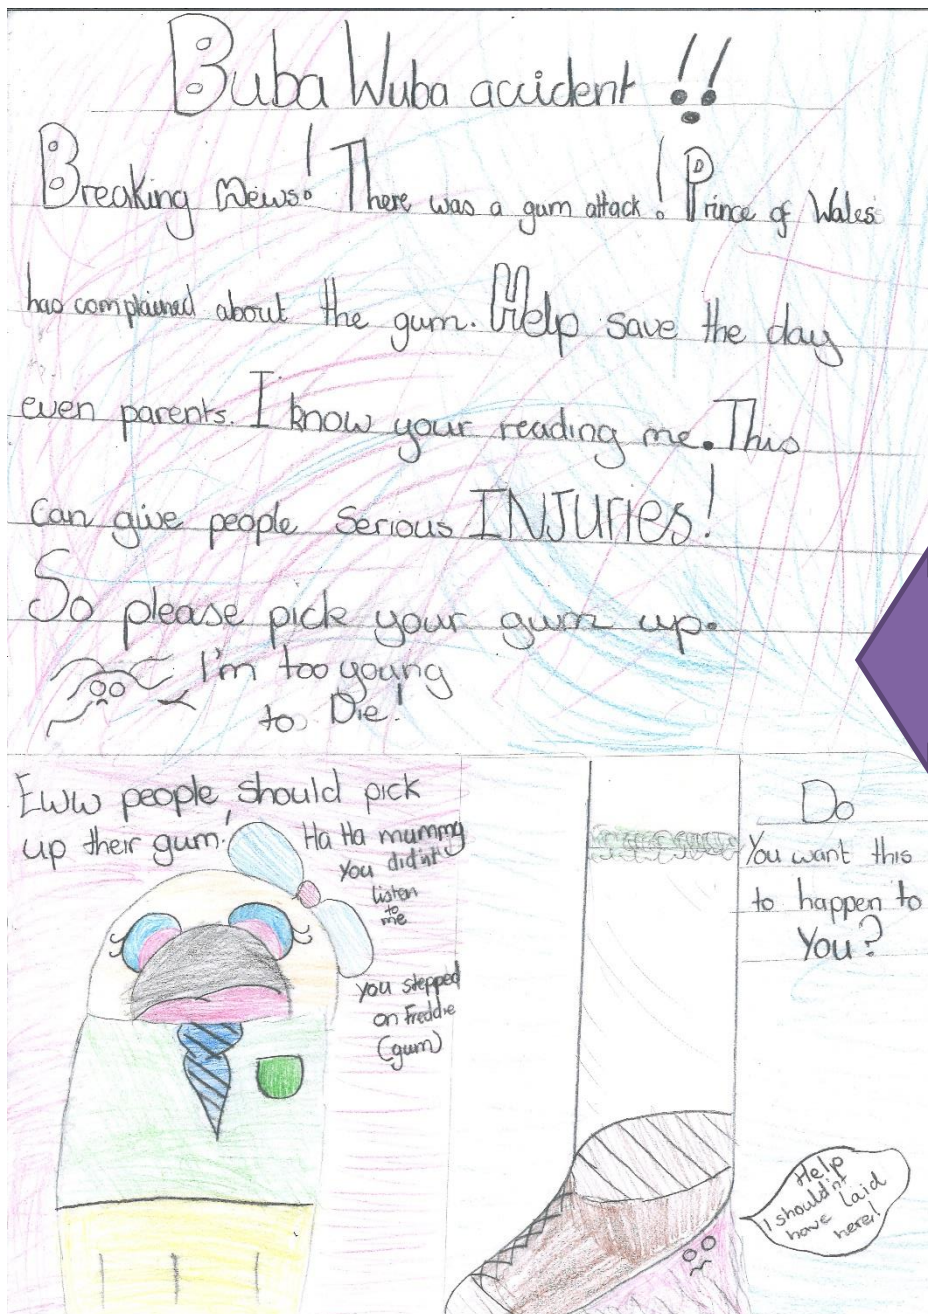 Buba Wuba accident !!
Breaking News! There was a gum attack! Prince of Wales
has complained about the gum. Help save the day
even parents. I know your reading me. This
can give people serious INJURIES!
So please pick your gum up.
I'm too young
to Die!
Eww people should pick
up their gum!
Ha Ha mummy
you did'nt
listen
to
me
you stepped
on Freddie
(gum)
Do
You want this
to happen to
You?
Help
I should'nt
have laid
here!